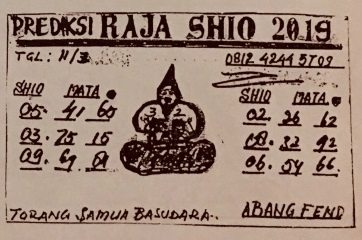 PREDIKSI RAJA SHIO 2019
TGL: 11/3
0812 4244 5709
SHIO MATA
05. 41 65
03. 75 15
09. 69
SHIO MATA
02 26 62
08. 32 92
06. 54 66
TORANG SAMUA BASUDARA..
ABANG FEND